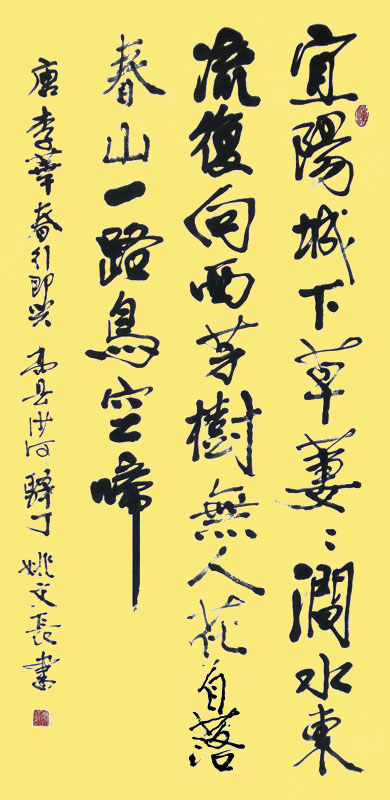 宜陽城下草萋〻澗水東
流復向西芳樹無人花自落
春山一路鳥空啼
唐李華春行即兴 县洪河 姚文長書